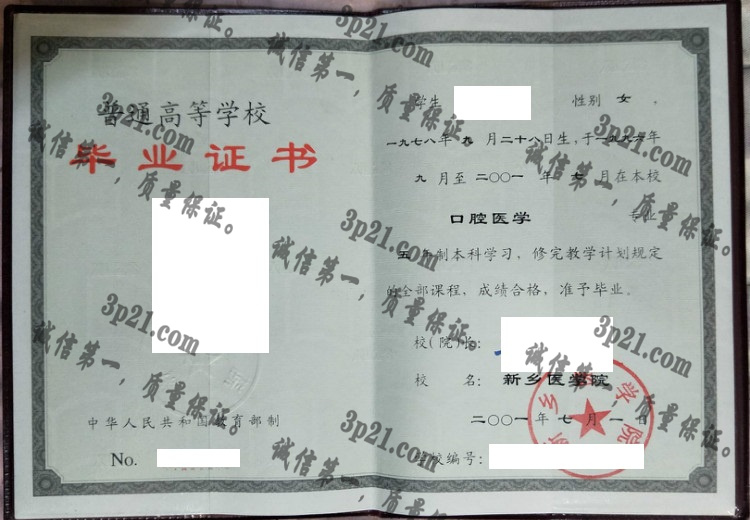 普通高等学校
毕业证书
中华人民共和国教育部制
No.
学生 性别 女 ，
一九七八年 九 月二十八日生，于一九九六年
九 月至 二〇〇一 年 七 月在本校
口腔医学 专业
五 年制本科学习，修完教学计划规定
的全部课程，成绩合格，准予毕业。
校(院)长：
校 名： 新乡医学院
二〇〇一 年 七 月 一 日
学校编号：
新乡医学院
3p21.com
诚信第一，质量保证。
3p21.com
诚信第一，质量保证。
3p21.com
诚信第一，质量保证。
3p21.com
诚信第一，质量保证。
3p21.com
诚信第一，质量保证。
3p21.com
诚信第一，质量保证。
3p21.com
诚信第一，质量保证。